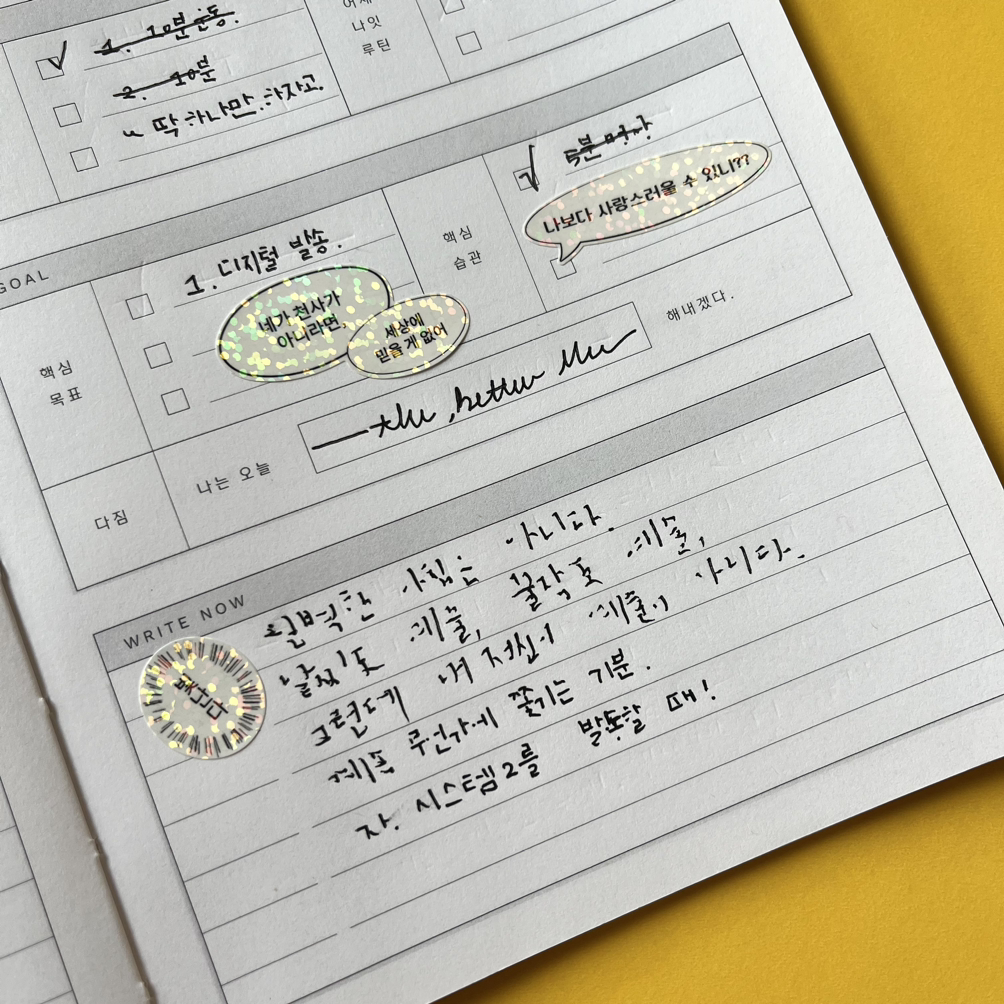 나잇
루틴
1. 10분 운동.
2. 10분
~ 딱 하나만 하자고.
GOAL
핵심
목표
1. 디지털 발송.
네가 천사가
아니라면,
세상에
믿을 게 없어
핵심
습관
5분
나보다 사랑스러울 수 있니??
다짐
나는 오늘
the better
해내겠다.
WRITE NOW
완벽한 아침는 아니다.
날씨도 예술, 불작도 예술,
그런데 내 정신이 예술이 아니다.
계속 무언가에 쫓기는 기분.
자. 시스템2를 발동할 때!